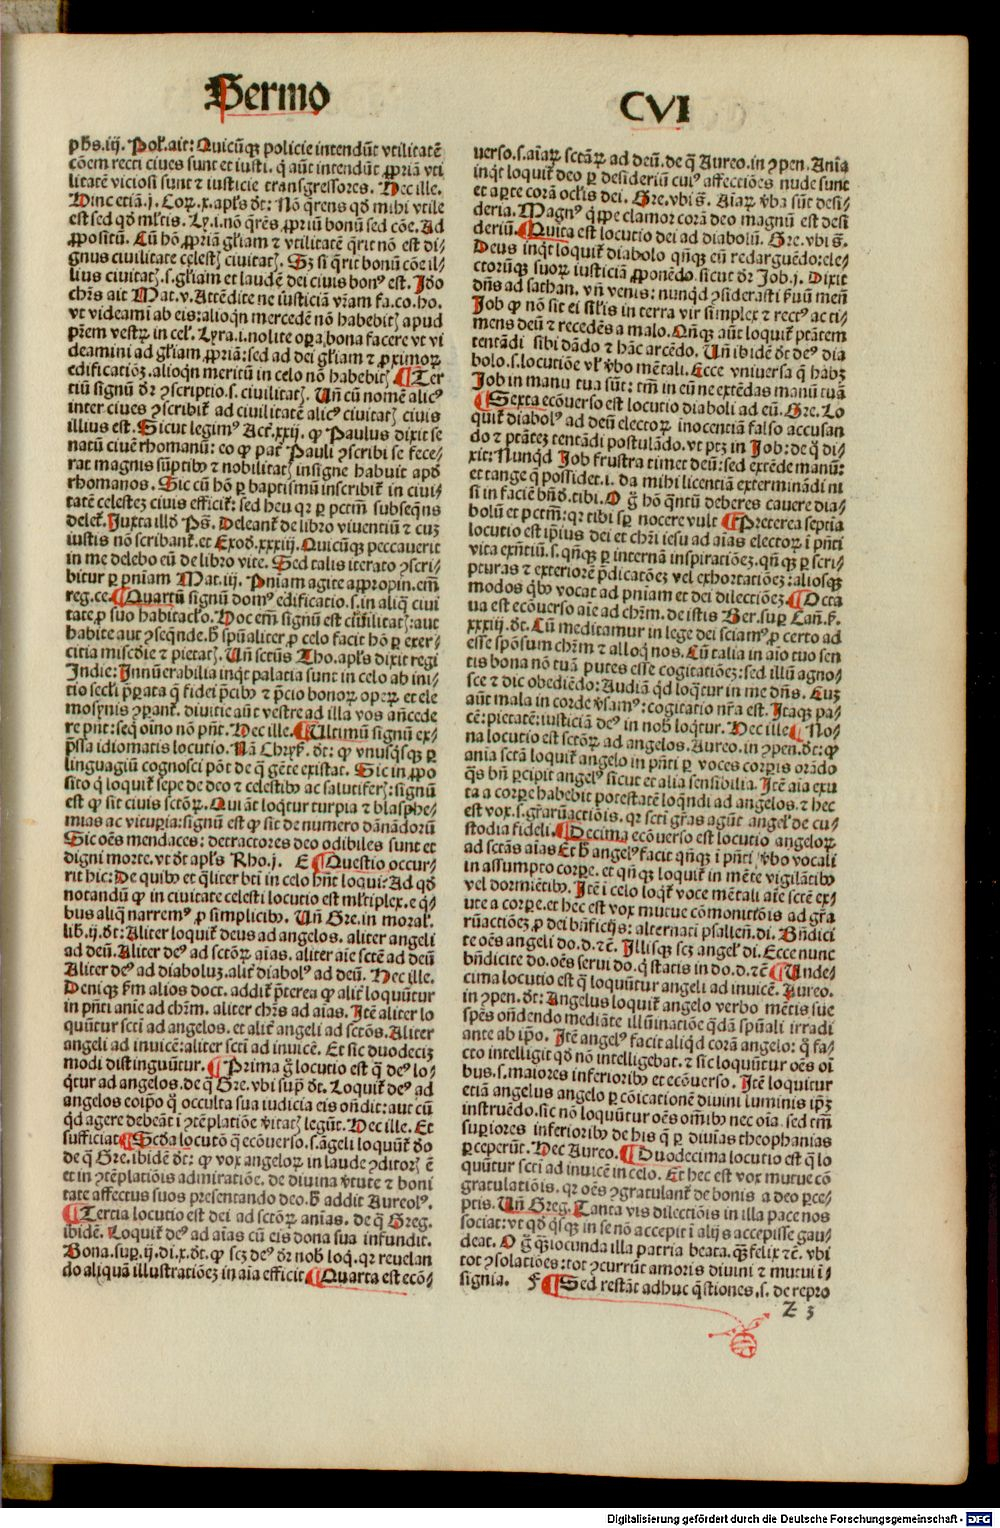 Sermo
CVI
phs.iij. Pol'.ait: Quicũqꝫ policie intendũt vtilitatē
cõem recti ciues sunt et iusti. q̃ aũt intendũt ꝓpriã vti
litatē viciosi sunt ⁊ iusticie transgressores. Hec ille.
Hinc etiã.j. Coꝝ.x. apl's dt: Nõ q̃rens qd mihi vtile
est sed qd ml'tis. Ly.i.nõ q̃rẽs ꝓpriũ bonũ sed cõe. Ad
ꝓpositũ. Cũ hõ ꝓpriã gl'iam ⁊ vtilitatē q̃rit nõ est di-
gnus ciuilitate celestꝭ ciuitatꝭ. Sꝫ si q̃rit bonũ cõe il-
lius ciuitatꝭ.s.gl'iam et laudē dei ciuis bonꝰ est. Jdo
chr̃s ait Mat.v. Attẽdite ne iusticiã vr̃am fa.co.ho.
vt videami ab eis: alioqn mercedē nõ habebitꝭ apud
pr̃em vestꝝ in cel'. Lyra.i.nolite oꝑa bona facere vt vi
deamini ad gl'iam ꝓpriã: sed ad dei gl'iam ⁊ ꝓximoꝝ
edificatiõꝫ. alioqn meritũ in celo nõ habebitꝭ ¶ Ter
tiũ signũ dr ꝯscriptio.s.ciuilitatꝭ. Vñ cũ nomē alicꝰ
inter ciues ꝯscribit̃ ad ciuilitatē alicꝰ ciuitatꝭ ciuis
illius est. Sicut legimꝰ Act.xxij. ꝙ Paulus dixit se
natũ ciuē rhomanũ: eo ꝙ pat̃ Pauli ꝯscribi se fece-
rat magnis sũptibꝰ ⁊ nobilitatꝭ insigne habuit apd
rhomanos. Sic cũ hõ ꝑ baptismũ inscribit̃ in ciui-
tatē celestez ciuis efficit̃: sed heu qꝛ ꝑ pctm̃ subseqñs
delet̃. Juxta illd Ps. Deleant̃ de libro viuentiũ ⁊ cuꝫ
iustis nõ scribant̃. et Exod.xxxiij. Quicũqꝫ peccauerit
in me delebo eũ de libro vite. Sed talis iterato ꝯscri-
bitur ꝑ pniam Mat.iij. Pniam agite appropin.em̃
reg.ce. ¶ Quartũ signũ domꝰ edificatio.s.in aliq̃ ciui
tate ꝓ suo habitacl'o. Hoc em̃ signũ est ciuilitatꝭ: aut
habite aut ꝯseq̃nde. h̃ spũaliter ꝓ celo facit hõ ꝑ exer-
citia miscdie ⁊ pietatꝭ. Vñ sctũs Tho. apl's dixit regi
Jndie: Jnnũerabilia inqt palatia sunt in celo ab ini-
tio secl'i pr̃parata q̃ fidei pr̃cibꝰ ⁊ pr̃cio bonoꝝ opeꝝ et ele
mosynis ꝯparant̃. diuitie aũt vestre ad illa vos añcede
re pñt: seq̃ oĩno nõ pñt. Hec ille. ¶ Vltimũ signũ ex-
pr̃ssa idiomatis locutio. Nã Chrys̃. dt: ꝙ vnusqsqꝫ ꝑ
linguagiũ cognosci põt de q̃ gẽte existat. Sic in ꝓpo
sito q̃ loquit̃ sepe de deo ⁊ celestibꝰ ac salutiferꝭ: signũ
est ꝙ sit ciuis sctõꝝ. Qui aũt loqt̃ur turpia ⁊ blasphe-
mias ac vituꝑia: signũ est ꝙ sit de numero dãnãdorũ
Sic oẽs mendaces: detractores deo odibiles sunt et
digni morte. vt dt apl's Rho.j. E ¶ Questio occur-
rit hic: De quibꝰ et q̃liter bti in celo hñt loqui: Ad qd
notandũ ꝙ in ciuitate celesti locutio est ml'tiplex. e q̃-
bus aliq̃ narremꝰ ꝓ simplicibꝰ. Vñ Gre. in moral'.
lib.ij.dt: Aliter loquit̃ deus ad angelos. aliter angeli
ad deũ. Aliter deꝰ ad sctõꝝ aĩas. aliter aĩe sctẽ ad deũ
Aliter deꝰ ad diaboluꝫ. alit̃ diabolꝰ ad deũ. Hec ille.
Deniqꝫ s̃m alios doct. addit̃ pr̃terea ꝙ alit̃ loquũtur
in pñti anie ad chr̃m. aliter chr̃s ad aĩas. Jtẽ aliter lo
quũtur scti ad angelos. et alit̃ angeli ad sctõs. Aliter
angeli ad inuicẽ: aliter scti ad inuicẽ. Et sic duodecĩꝫ
modi distinguũtur. ¶ Prima g̃ locutio est q̃ deꝰ lo-
q̃tur ad angelos. de q̃ Gre. vbi supr̃ dt. Loquit̃ deꝰ ad
angelos eoip̃o q̃ occulta sua iudicia eis oñdit: aut cũ
qd agere debeãt i ꝯtẽplatiõe v̾itatꝭ legũt. Hec ille. Et
sufficiat ¶ Scd̃a locutõ q̃ ecõuerso.s.ãgeli loquũt̃ dõ
de q̃ Gre. ibidẽ dt: ꝙ vox angeloꝝ in laude ꝯditorꝭ ẽ
et in ꝯtẽplatiõis admiratiõe. de diuina v̾tute ⁊ boni
tate affectus suos presentando deo. h̃ addit Aureolꝰ.
¶ Tertia locutio est dei ad sctõꝝ anias. de q̃ Greg.
ibidẽ. Loquit̃ deꝰ ad aĩas cũ eis dona sua infundit.
Bona. suꝑ.ij.di.x.dt. ꝙ scꝫ deꝰ dr nob̃ loq̃. qꝛ reuelan
do aliquã illustratiõeꝫ in aĩa efficit. ¶ Quarta est ecõ-
uerso.s.aĩaꝝ sctãꝝ ad deũ. de q̃ Aureo. in ꝯpen. Anĩa
inqt loquit̃ deo ꝑ desideriũ cuiꝰ affectiões nude sunt
et aꝑte corã ocl'is dei. Gre. vbi s̃. Aĩaꝝ v̾ba sũt desi-
deria. Magnꝰ q̃ppe clamor corã deo magnũ est desi
deriũ. ¶ Quita est locutio dei ad diabolũ. Gre. vbi s̃.
Deus inqt loquit̃ diabolo qñqꝫ eũ redarguẽdo: ele-
ctorũqꝫ suoꝝ iusticiã ꝓponẽdo. sicut dr Job.j. Dixit
dñs ad sathan. vñ venis: nunqd ꝯsiderasti s̾uũ meũ
Job ꝙ nõ sit ei sil'is in terra vir simplex ⁊ rectꝰ ac ti-
mens deũ ⁊ recedẽs a malo. Qñqꝫ aũt loquit̃ ptãtem
tentãdi sibi dãdo ⁊ hãc arcẽdo. Vñ ibidẽ dt deꝰ dia
bolo.s.locutiõe vl' v̾bo mẽtali. Ecce vniuersa q̃ habꝫ
Job in manu tua sũt: tm̃ in eũ ne extẽdas manũ tuã
¶ Sexta ecõuerso est locutio diaboli ad eũ. Gre. Lo
quit̃ diabolꝰ ad deũ electoꝝ inocentiã falso accusan
do ⁊ ptãteꝫ tentãdi postulãdo. vt ptꝫ in Job: de q̃ di-
xit: Nunqd Job frustra timet deũ: sed extẽde manũ:
et tange q̃ possidet.i. da mihi licentiã exterminãdi ni
si in faciẽ bñd. tibi. O g̃ hõ q̃ntũ deberes cauere dia-
bolũ et pctm̃: qꝛ tibi sp̃ nocere vult ¶ Preterea septia
locutio est ip̃ius dei et chr̃i iesu ad aĩas electoꝝ ĩ pñti
vita exñtiũ.s.qñqꝫ ꝑ internã inspiratiõeꝫ. qñqꝫ ꝑ scri-
pturas ⁊ exteriorẽ pr̃dicatõeꝫ vel exhortatiõeꝫ: aliosqꝫ
modos qbꝰ vocat ad pniam et dei dilectiõeꝫ. ¶ Octa
ua est ecõuerso aĩe ad chr̃m. de istis Ber. suꝑ Cañ. s̃.
xxxiij. dt. Cũ meditamur in lege dei sciamꝰ ꝓ certo ad
esse spõsum chr̃m ⁊ alloq̃ nos. Cũ talia in aĩo tuo sen
tis bona nõ tuã putes esse cogitatiõeꝫ: sed illũ agno-
sce ⁊ dic obediẽdo: Audiã qd loq̃tur in me dñs. Cuꝫ
aũt mala in corde v̾samꝰ: cogitatio nr̃a est. Jtaqꝫ pa-
cẽ: pietatẽ: iusticiã deꝰ in nob̃ loq̃tur. Hec ille ¶ No-
na locutio est sctõꝝ ad angelos. Aureo. in ꝯpen. dt: ꝙ
ania sctã loquit̃ angelo in pñti ꝑ voces corꝑis orãdo
q̃s bñ ꝑcipit angelꝰ sicut et alia sensibilia. Jtẽ aĩa exu
ta a corꝑe habebit potestatẽ loqñdi ad angelos. ⁊ hec
est vox.s.gr̃aruatiõis. qꝛ scti gr̃as agũt angelꝭ de cu-
stodia fideli. ¶ Decima ecõuerso est locutio angeloꝝ
ad sctãs aĩas Et h̃ angelꝰ facit qñqꝫ ĩ pñti v̾bo vocali
in assumpto corꝑe. et qñqꝫ loquit̃ in mẽte vigilãtibꝰ
vel dormiẽtibꝰ. Jtẽ i celo loq̃t̃ voce mẽtali aĩe sctẽ ex-
ute a corꝑe. et hec est vox mutue cõmonitõis ad gr̃a
rũactiõeꝫ ꝓ dei bñficijs: alternati psallen. di. Bñdici
te oẽs angeli do. d. ⁊c̃. Jllisqꝫ scꝫ angelꝭ di. Ecce nunc
bñdicite do. oẽs serui do. q̃ statis in do. d. ⁊c̃ ¶ Vnde-
cima locutio est q̃ loquũtur angeli ad inuicẽ. Aureo.
in ꝯpen. dt: Angelus loquit̃ angelo verbo mẽtis sue
spẽs oñdendo mediãte illũinatiõe q̃dã spũali irradi
ante ab ip̃o. Jtẽ angelꝰ facit aliqd corã angelo: q̃ fa-
cto intelligit qd nõ intelligebat. ⁊ sic loquũtur oẽs oĩ
bus.s.maiores inferioribꝰ et ecõuerso. Jtẽ loquitur
etiã angelus angelo ꝑ cõicationẽ diuini luminis ip̃ꝫ
instruẽdo. sic nõ loquũtur oẽs om̃ibꝰ nec oĩa. sed tm̃
superiores inferioribꝰ de his q̃ ꝑ diuĩas theophanias
ꝑceperũt. Hec Aureo. ¶ Duodecima locutio est q̃ lo
quũtur scti ad inuicẽ in celo. Et hec est vox mutue cõ
gratulatiõis. qꝛ oẽs ꝯgratulant̃ de bonis a deo ꝑce-
ptis. Vñ Greg. Tanta vis dilectiõis in illa pace nos
sociat: vt qd q̃sqꝫ in se nõ accepit i alijs accepisse gau-
deat. O g̃ q̃ꝫ iocunda illa patria beata. q̃ꝫ felix ⁊c̃. vbi
tot ꝯsolatiões: tot ꝯcurrũt amoris diuini ⁊ mutui ĩ-
signia. F ¶ Sed restãt adhuc q̃stiones.s. de repro
Z 3
Digitalisierung gefördert durch die Deutsche Forschungsgemeinschaft - DFG